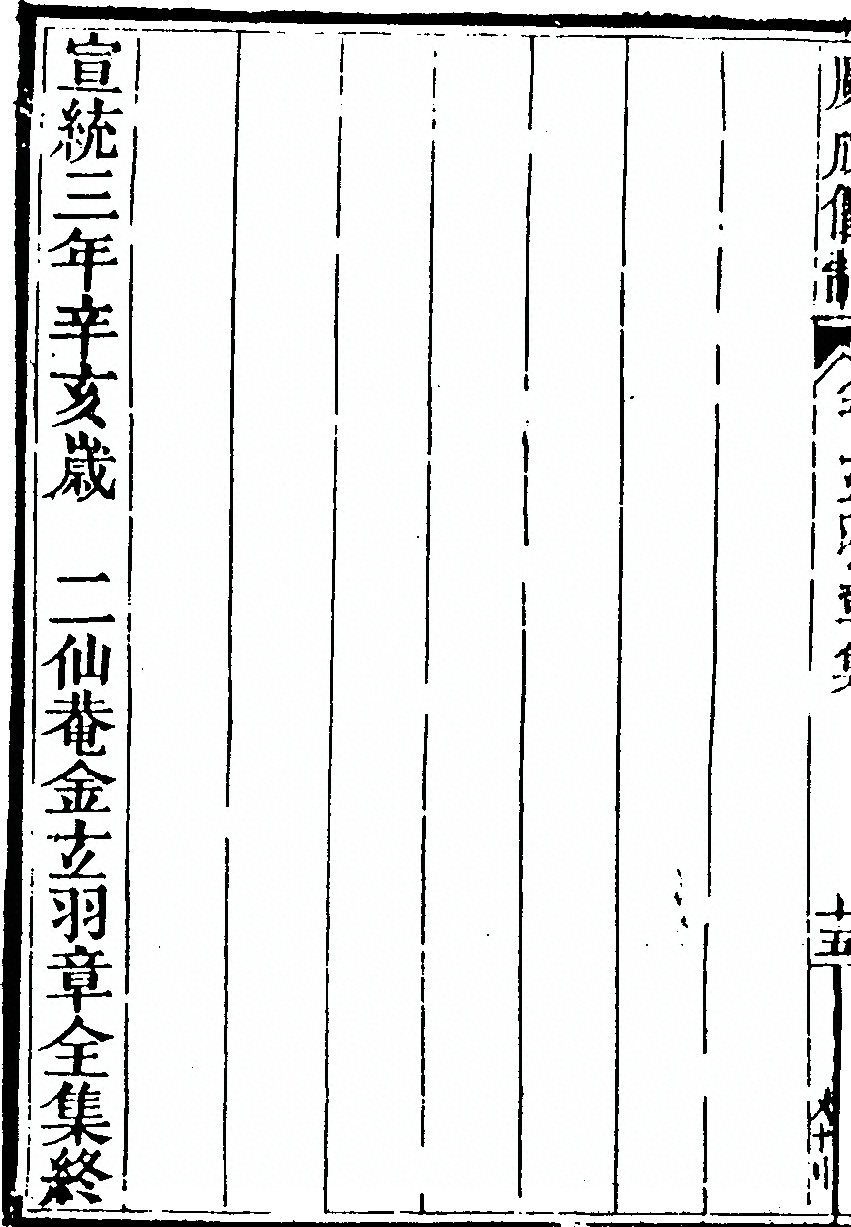 十五
宣統三年辛亥歲　二仙菴金玄羽章全集終